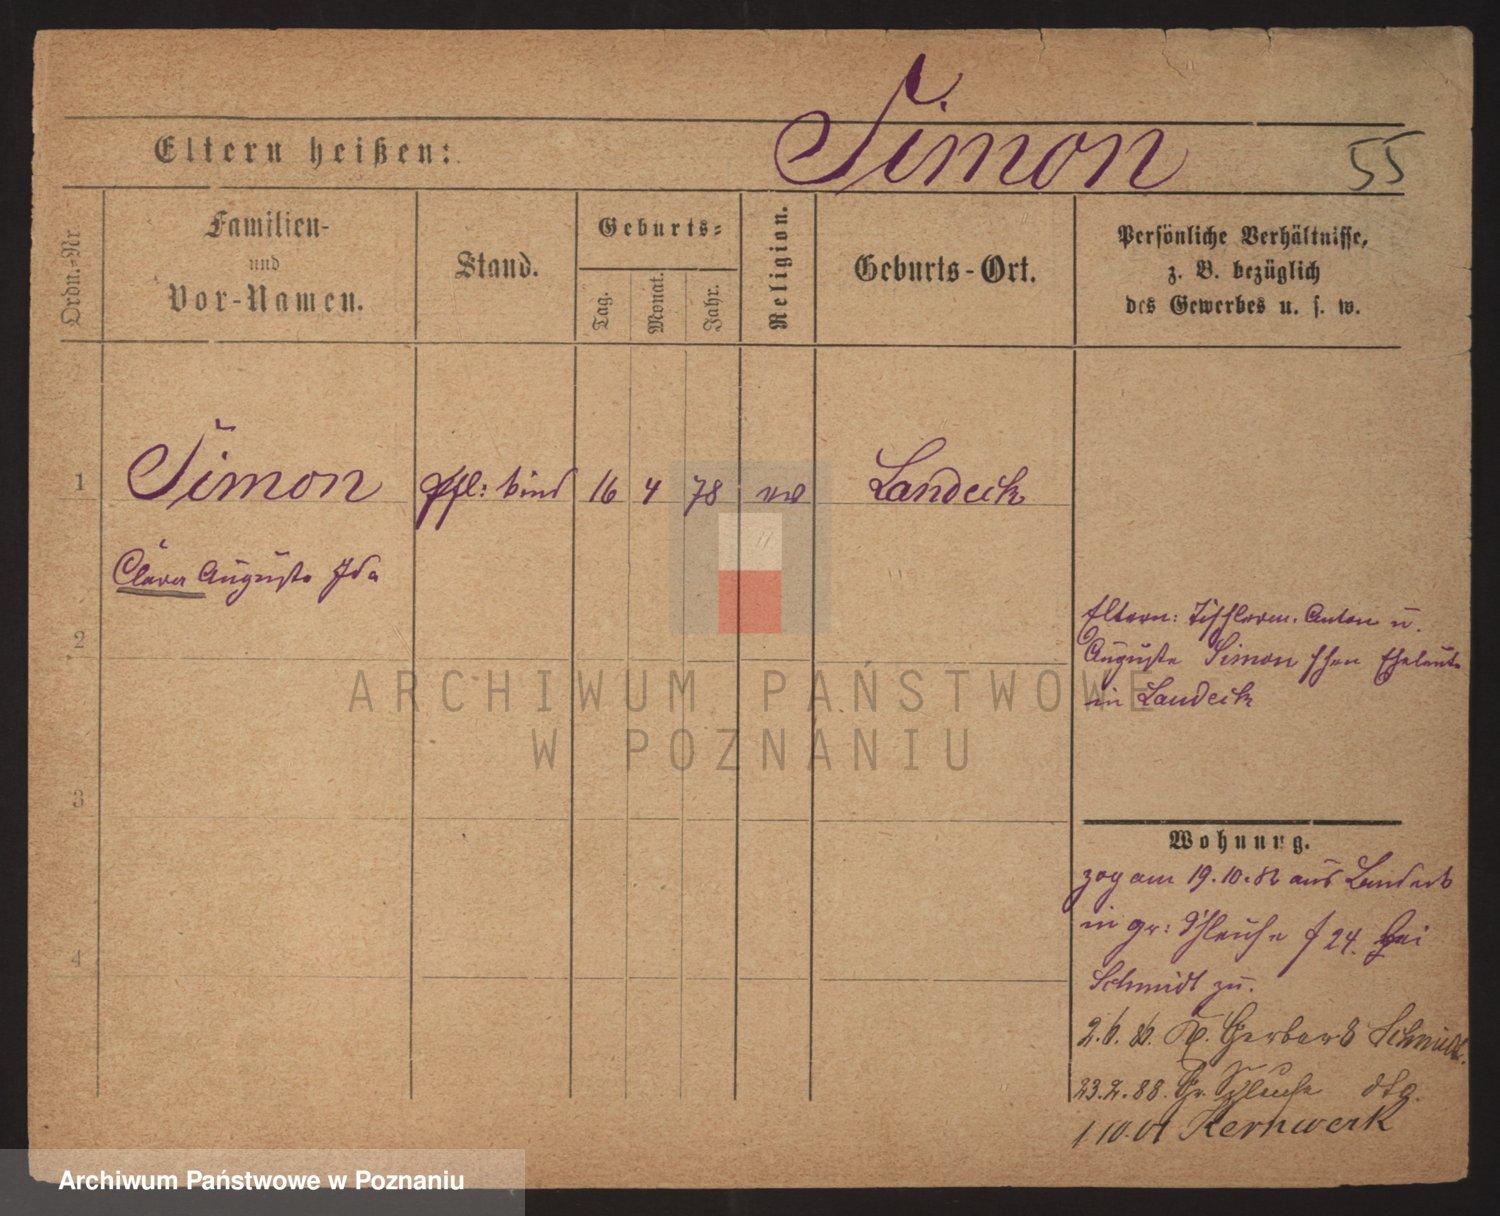 Simon
55
Eltern heißen:
Ordn.-Nr.
Familien-
und
Vor-Namen.
Stand.
Geburts-
Tag.
Monat.
Jahr.
Religion.
Geburts-Ort.
Persönliche Verhältnisse,
z. B. bezüglich
des Gewerbes u. s. w.
1 Simon Pfl: kind 16 4 78 ev Landeck
Clara Auguste Ida
2
Eltern: Tischlerm. Anton u.
Auguste Simon schen Eheleute
in Landeck
3
Wohnung.
zog am 19.10.82 aus Landeck
in gr: Schleuse 24. bei
Schmidt zu.
4
Gerber Schmidt.
23.2.88. Gr. Schleuse dtg.
1 10.01 Kernwerk
ARCHIWUM PAŃSTWOWE
W POZNANIU
Archiwum Państwowe w Poznaniu